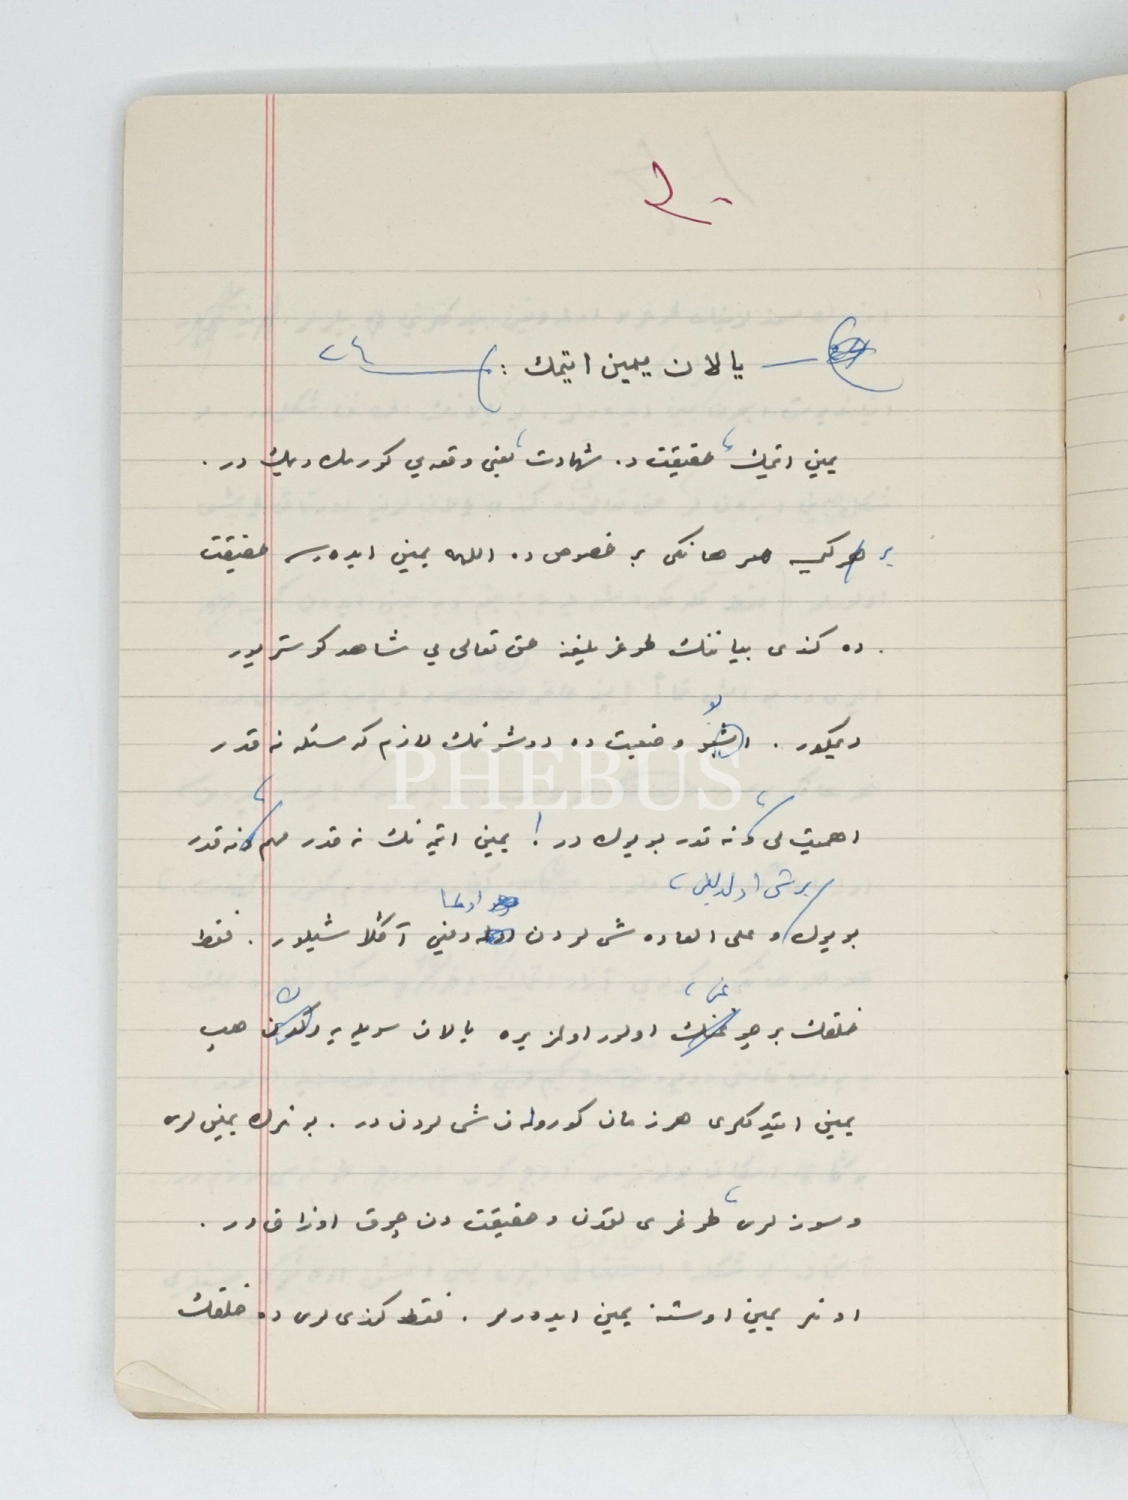 ٢٠
یالان یمین ایتمك :
یمین ایتمك، حقیقت و . شهادت، یعنی وقعه‌یی كورمك دیمك در .
بر كیمسه هر هانكی بر خصوص ده اللهه یمین ایدەرسه حقیقت
ده كندی بیاننك طوغریلیغنه حق تعالی یی شاهد كوستریور
دیمكدر . بو وضعیت ده دوشونمك لازم كه مسئله نه قدر
اهمیت لی، نه قدر بویوك در ! یمین ایتمه نك نه قدر مهم، نه قدر
بر شی اولدیغی، اولدا
بویوك و علی العاده شی لردن دیغی آكلاشیلور . فقط
خلقك بر چوغی، اولور اولمز یره یالان سویله یه رك هپ
یمین ایتدیكلری هر زمان كورولن شی لردن در . بونلرك یمین لری
و سوز لری، طوغری لقدن و حقیقت دن چوق اوزاق در .
اونلر یمین اوستنه یمین ایدرلر . فقط كندی لری ده خلقك
PHEBUS